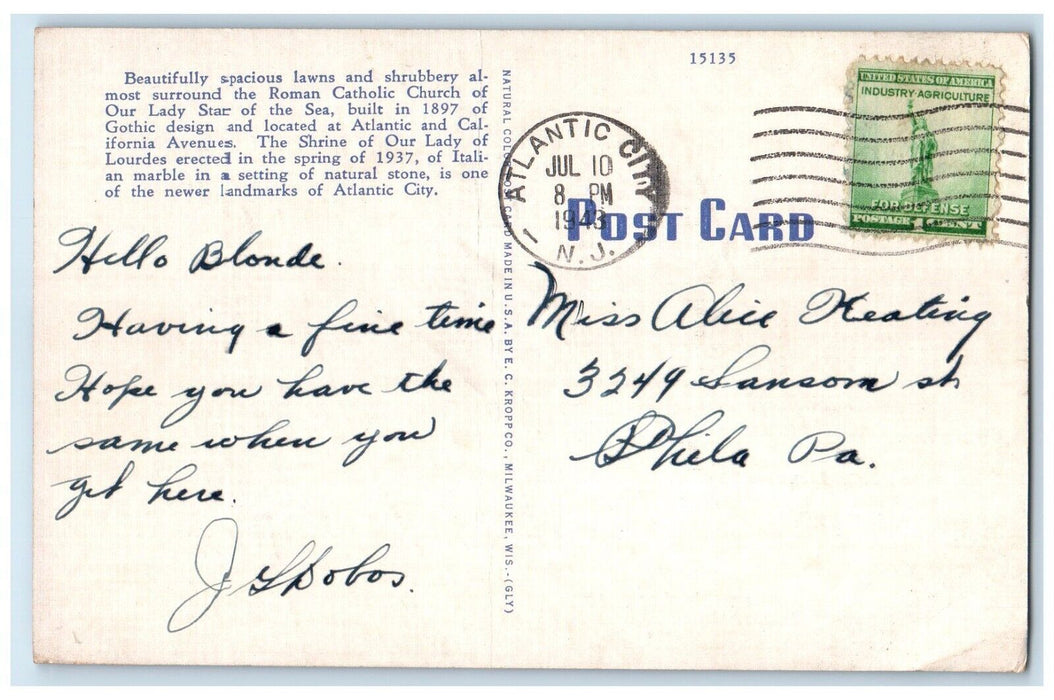 15135
Beautifully spacious lawns and shrubbery al-
most surround the Roman Catholic Church of
Our Lady Star of the Sea, built in 1897 of
Gothic design and located at Atlantic and Cal-
ifornia Avenues. The Shrine of Our Lady of
Lourdes erected in the spring of 1937, of Itali-
an marble in a setting of natural stone, is one
of the newer landmarks of Atlantic City.
NATURAL COLOR POST CARD MADE IN U.S.A. BY E. C. KROPP CO., MILWAUKEE, WIS.-(GLY)
ATLANTIC CITY
JUL 10
8 PM
1943
N.J.
UNITED STATES OF AMERICA
INDUSTRY·AGRICULTURE
FOR DEFENSE
POSTAGE 1 CENT
POST CARD
Hello Blonde.
Having a fine time
Hope you have the
same when you
get here.
J Dobos.
Miss Alice Keating
3249 Sansom st
Phila Pa.